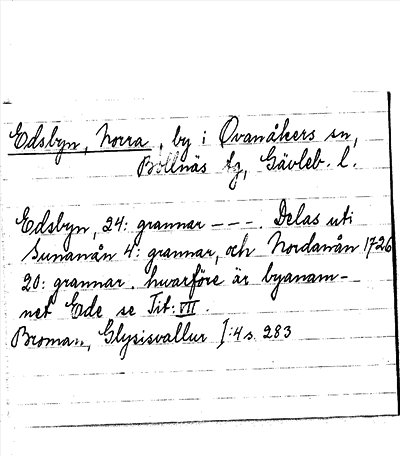 Edsbyn, Norra, by i Ovanåkers sn,
Bollnäs tg, Gävleb. l.
Edsbyn, 24: grannar ---. Delas uti
Sunanån 4: grannar, och Nordanån 1726
20: grannar. hwarföre är byanam-
net Ede se Tit: VII.
Broman, Glysisvallur I:4 s. 283